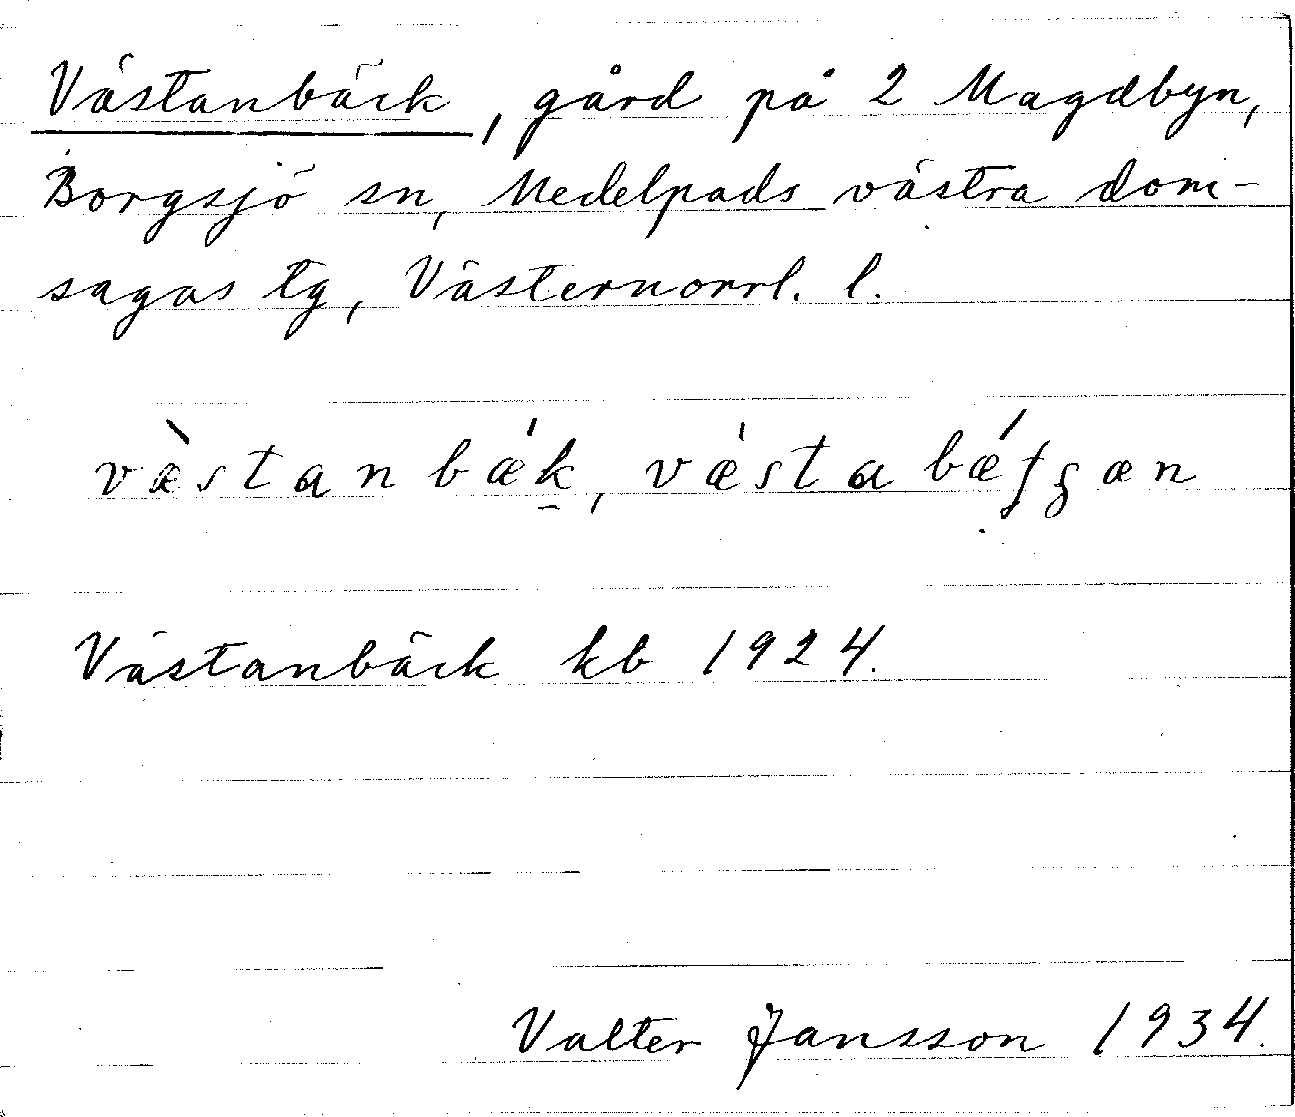 Västanbäck, gård på 2 Magdbyn,
Borgsjö sn, Medelpads västra dom-
sagas tg, Västernorrl. l.
væ̀stanbǽk̠, vǽstabǽʃʒæn
Västanbäck kb 1924.
Valter Jansson 1934.